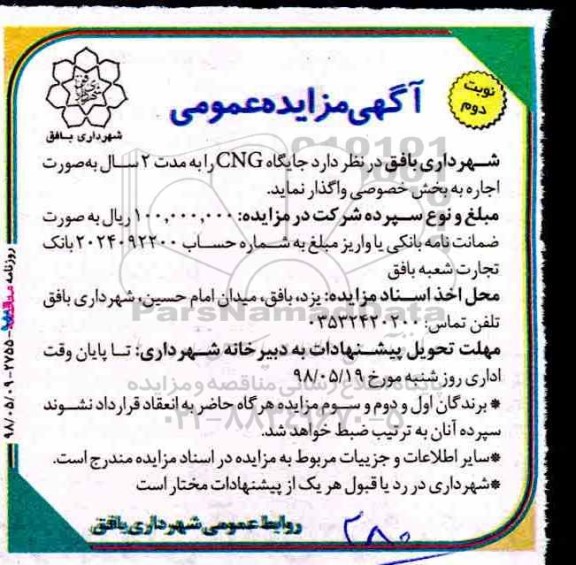 نوبت دوم
آگهی مزایده عمومی
شهرداری بافق
شهرداری بافق در نظر دارد جایگاه CNG را به مدت ۲ سال به صورت
اجاره به بخش خصوصی واگذار نماید.
مبلغ و نوع سپرده شرکت در مزایده: ۱۰۰,۰۰۰,۰۰۰ ریال به صورت
ضمانت نامه بانکی یا واریز مبلغ به شماره حساب ۲۰۲۴۰۹۲۲۰۰ بانک
تجارت شعبه بافق
محل اخذ اسناد مزایده: یزد، بافق، میدان امام حسین، شهرداری بافق
تلفن تماس: ۰۳۵۳۲۴۲۰۲۰۰
مهلت تحویل پیشنهادات به دبیرخانه شهرداری: تا پایان وقت
اداری روز شنبه مورخ ۹۸/۰۵/۱۹
* برندگان اول و دوم و سوم مزایده هرگاه حاضر به انعقاد قرارداد نشوند
سپرده آنان به ترتیب ضبط خواهد شد.
*سایر اطلاعات و جزییات مربوط به مزایده در اسناد مزایده مندرج است.
*شهرداری در رد یا قبول هر یک از پیشنهادات مختار است
روابط عمومی شهرداری بافق
۲۸۰
روزنامه
۲۷۵۵-۹۸/۰۵/۰۹
ParsNamadData